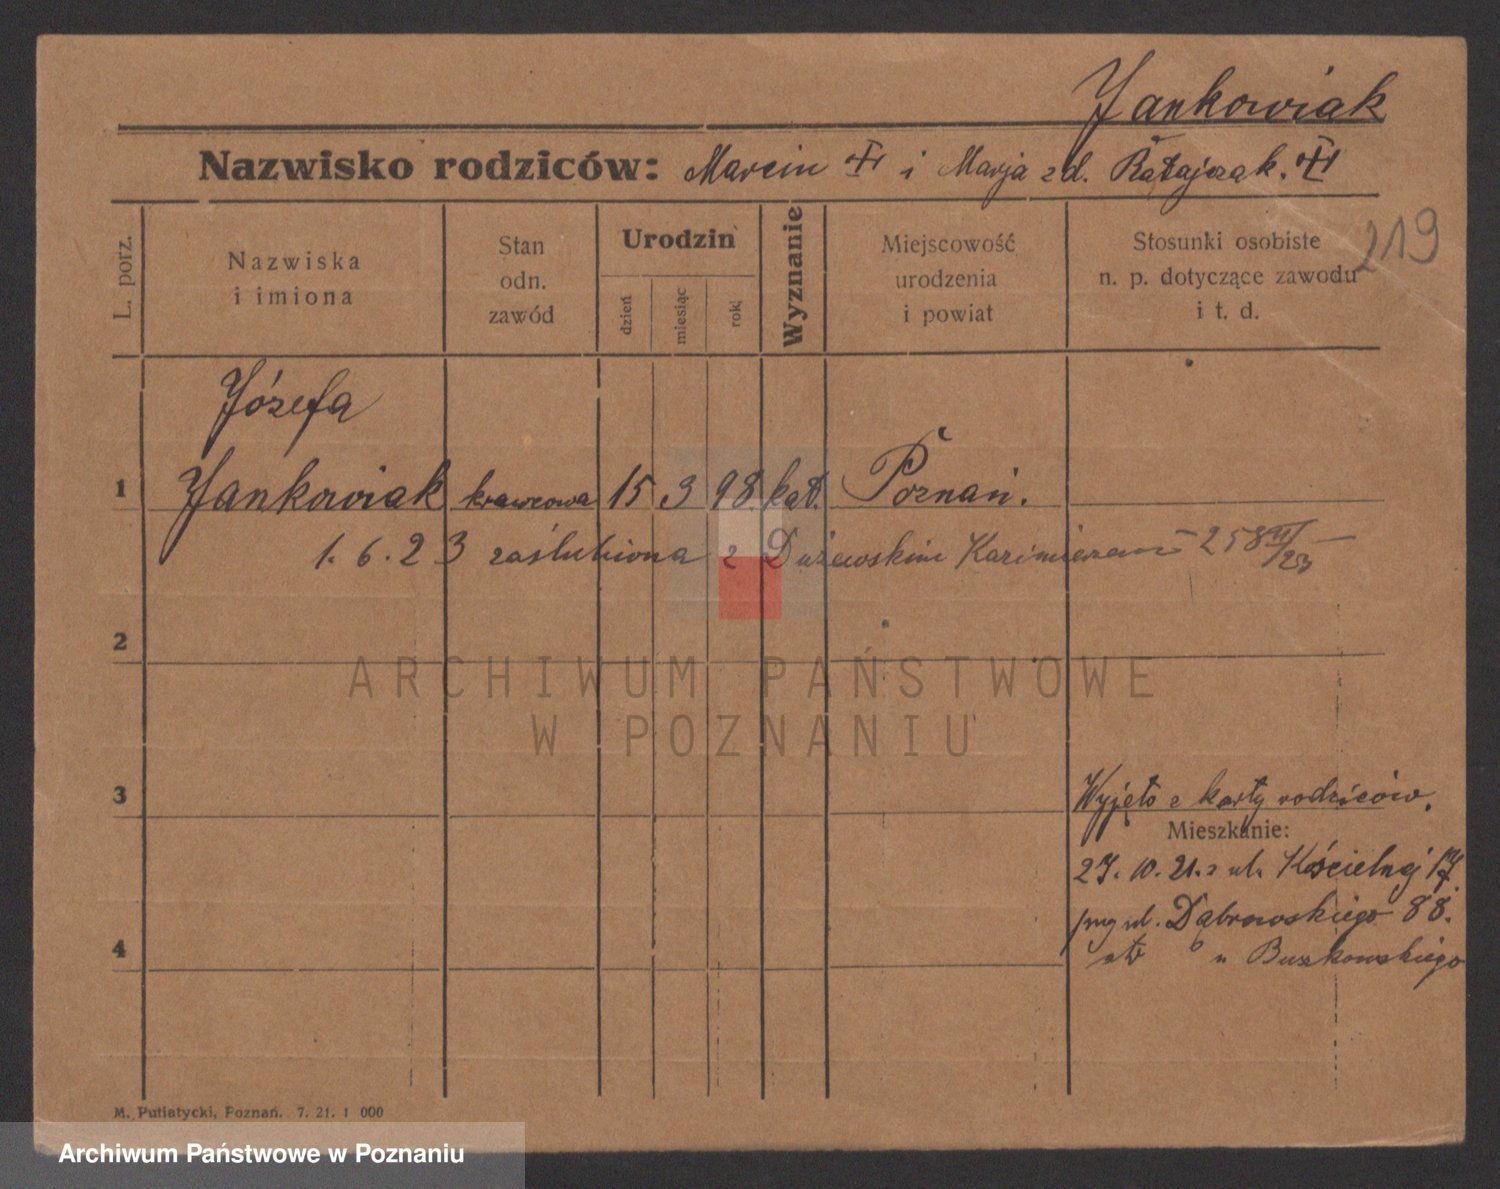 Jankowiak
Nazwisko rodziców: Marcin i Marja zd. Ratajczak.
219
L. porz.
Nazwiska
i imiona
Stan
odn.
zawód
Urodzin
dzień
miesiąc
rok
Wyznanie
Miejscowość
urodzenia
i powiat
Stosunki osobiste
n. p. dotyczące zawodu
i t. d.
Józefa
1 Jankowiak krawcowa 15 3 98. kat. Poznań.
1. 6. 23 zaślubiona z Dużewskim Kazimierzem - 258
2
ARCHIWUM PAŃSTWOWE
W POZNANIU
3
Wyjęto z karty rodziców.
Mieszkanie:
27. 10. 21. z ul. Kościelnej 17.
ul. Dąbrowskiego 88.
4
u Buszkowskiego
M. Putiatycki, Poznań. 7. 21. 1 000
Archiwum Państwowe w Poznaniu